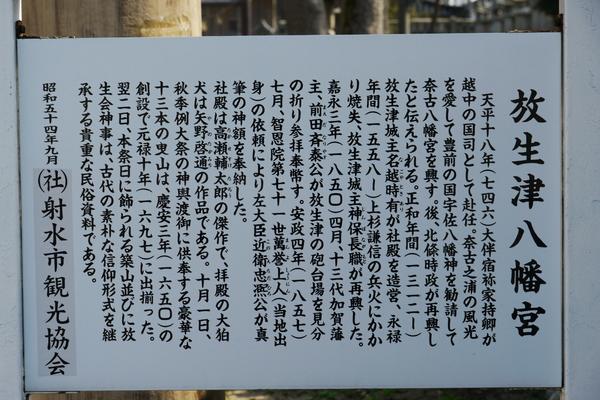 放生津八幡宮
天平十八年(七四六)大伴宿祢家持卿が
越中の国司として赴任。奈古之浦の風光
を愛して豊前の国宇佐八幡神を勧請して
奈古八幡宮を興す。後、北條時政が再興し
たと伝えられる。正和年間(一三一二ー)
放生津城主名越時有が社殿を造営、永禄
年間(一五五八ー)上杉謙信の兵火にかか
り焼失、放生津城主神保長職が再興した。
嘉永三年(一八五〇)四月、十三代加賀藩
主、前田斉泰公が放生津の砲台場を見分
の折り参拝奉幣す。安政四年(一八五七)
七月、智恩院第七十一世萬誉上人(当地出
身)の依頼により左大臣近衛忠凞公が真
筆の神額を奉納した。
社殿は高瀬輔太郎の傑作で、拝殿の大狛
犬は矢野啓通の作品である。十月一日、
秋季例大祭の神輿渡御に供奉する豪華な
十三本の曳山は、慶安三年(一六五〇)の
創設で元禄十年(一六九七)に出揃った。
翌二日、本祭日に飾られる築山並びに放
生会神事は、古代の素朴な信仰形式を継
承する貴重な民俗資料である。
昭和五十四年九月
(社)射水市観光協会